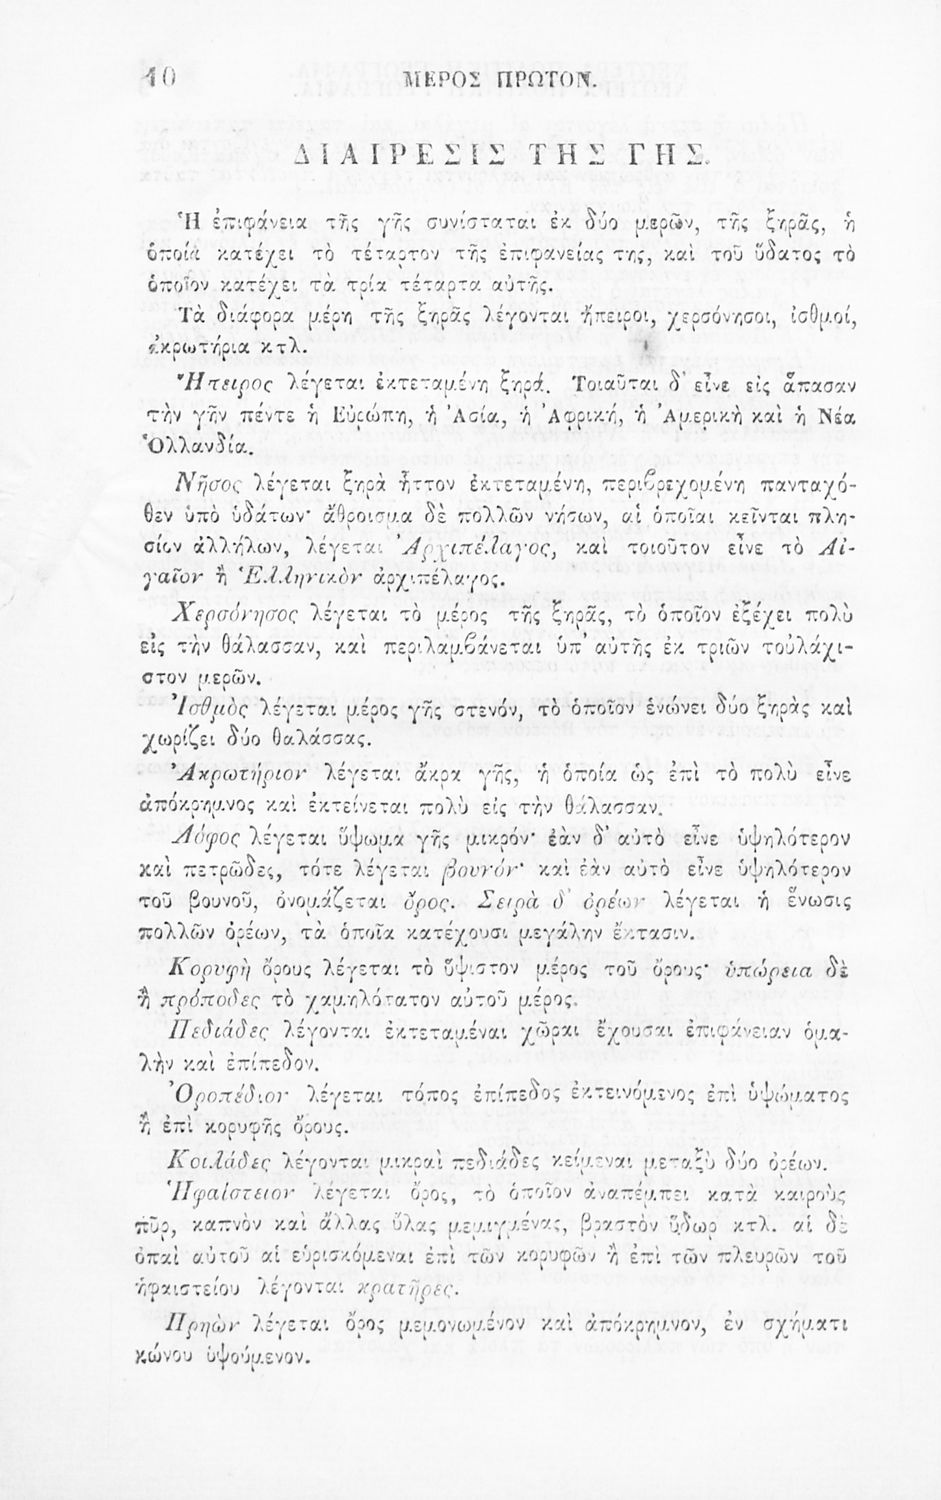 10
ΜΕΡΟΣ ΠΡΩΤΟΝ.
ΔΙΑΙΡΕΣΙΣ ΤΗΣ ΓΗΣ.
Ἡ ἐπιφάνεια τῆς γῆς συνίσταται ἐκ δύο μερῶν, τῆς ξηρᾶς, ἡ
ὁποία κατέχει τὸ τέταρτον τῆς ἐπιφανείας της, καὶ τοῦ ὕδατος τὸ
ὁποῖον κατέχει τὰ τρία τέταρτα αὐτῆς.
Τὰ διάφορα μέρη τῆς ξηρᾶς λέγονται ἤπειροι, χερσόνησοι, ἰσθμοί,
ἀκρωτήρια κτλ.
Ἤπειρος λέγεται ἐκτεταμένη ξηρά. Τοιαῦται δ' εἶνε εἰς ἅπασαν
τὴν γῆν πέντε ἡ Εὐρώπη, ἡ Ἀσία, ἡ Ἀφρική, ἡ Ἀμερικὴ καὶ ἡ Νέα
Ὁλλανδία.
Νῆσος λέγεται ξηρὰ ἧττον ἐκτεταμένη, περιβρεχομένη πανταχό-
θεν ὑπὸ ὑδάτων· ἄθροισμα δὲ πολλῶν νήσων, αἱ ὁποῖαι κεῖνται πλη-
σίον ἀλλήλων, λέγεται Ἀρχιπέλαγος, καὶ τοιοῦτον εἶνε τὸ Αἰ-
γαῖον ἢ Ἑλληνικὸν ἀρχιπέλαγος.
Χερσόνησος λέγεται τὸ μέρος τῆς ξηρᾶς, τὸ ὁποῖον ἐξέχει πολὺ
εἰς τὴν θάλασσαν, καὶ περιλαμβάνεται ὑπ' αὐτῆς ἐκ τριῶν τοὐλάχι-
στον μερῶν.
Ἰσθμὸς λέγεται μέρος γῆς στενόν, τὸ ὁποῖον ἑνώνει δύο ξηρὰς καὶ
χωρίζει δύο θαλάσσας.
Ἀκρωτήριον λέγεται ἄκρα γῆς, ἡ ὁποία ὡς ἐπὶ τὸ πολὺ εἶνε
ἀπόκρημνος καὶ ἐκτείνεται πολὺ εἰς τὴν θάλασσαν.
Λόφος λέγεται ὕψωμα γῆς μικρόν· ἐὰν δ' αὐτὸ εἶνε ὑψηλότερον
καὶ πετρῶδες, τότε λέγεται βουνόν· καὶ ἐὰν αὐτὸ εἶνε ὑψηλότερον
τοῦ βουνοῦ, ὀνομάζεται ὄρος. Σειρὰ δ' ὀρέων λέγεται ἡ ἕνωσις
πολλῶν ὀρέων, τὰ ὁποῖα κατέχουσι μεγάλην ἔκτασιν.
Κορυφὴ ὄρους λέγεται τὸ ὕψιστον μέρος τοῦ ὄρους· ὑπώρεια δὲ
ἢ πρόποδες τὸ χαμηλότατον αὐτοῦ μέρος.
Πεδιάδες λέγονται ἐκτεταμέναι χῶραι ἔχουσαι ἐπιφάνειαν ὁμα-
λὴν καὶ ἐπίπεδον.
Ὀροπέδιον λέγεται τόπος ἐπίπεδος ἐκτεινόμενος ἐπὶ ὑψώματος
ἢ ἐπὶ κορυφῆς ὄρους.
Κοιλάδες λέγονται μικραὶ πεδιάδες κείμεναι μεταξὺ δύο ὀρέων.
Ἡφαίστειον λέγεται ὄρος, τὸ ὁποῖον ἀναπέμπει κατὰ καιροὺς
πῦρ, καπνὸν καὶ ἄλλας ὕλας μεμιγμένας, βραστὸν ὕδωρ κτλ. αἱ δὲ
ὀπαὶ αὐτοῦ αἱ εὑρισκόμεναι ἐπὶ τῶν κορυφῶν ἢ ἐπὶ τῶν πλευρῶν τοῦ
ἡφαιστείου λέγονται κρατῆρες.
Πρηὼν λέγεται ὄρος μεμονωμένον καὶ ἀπόκρημνον, ἐν σχήματι
κώνου ὑψούμενον.